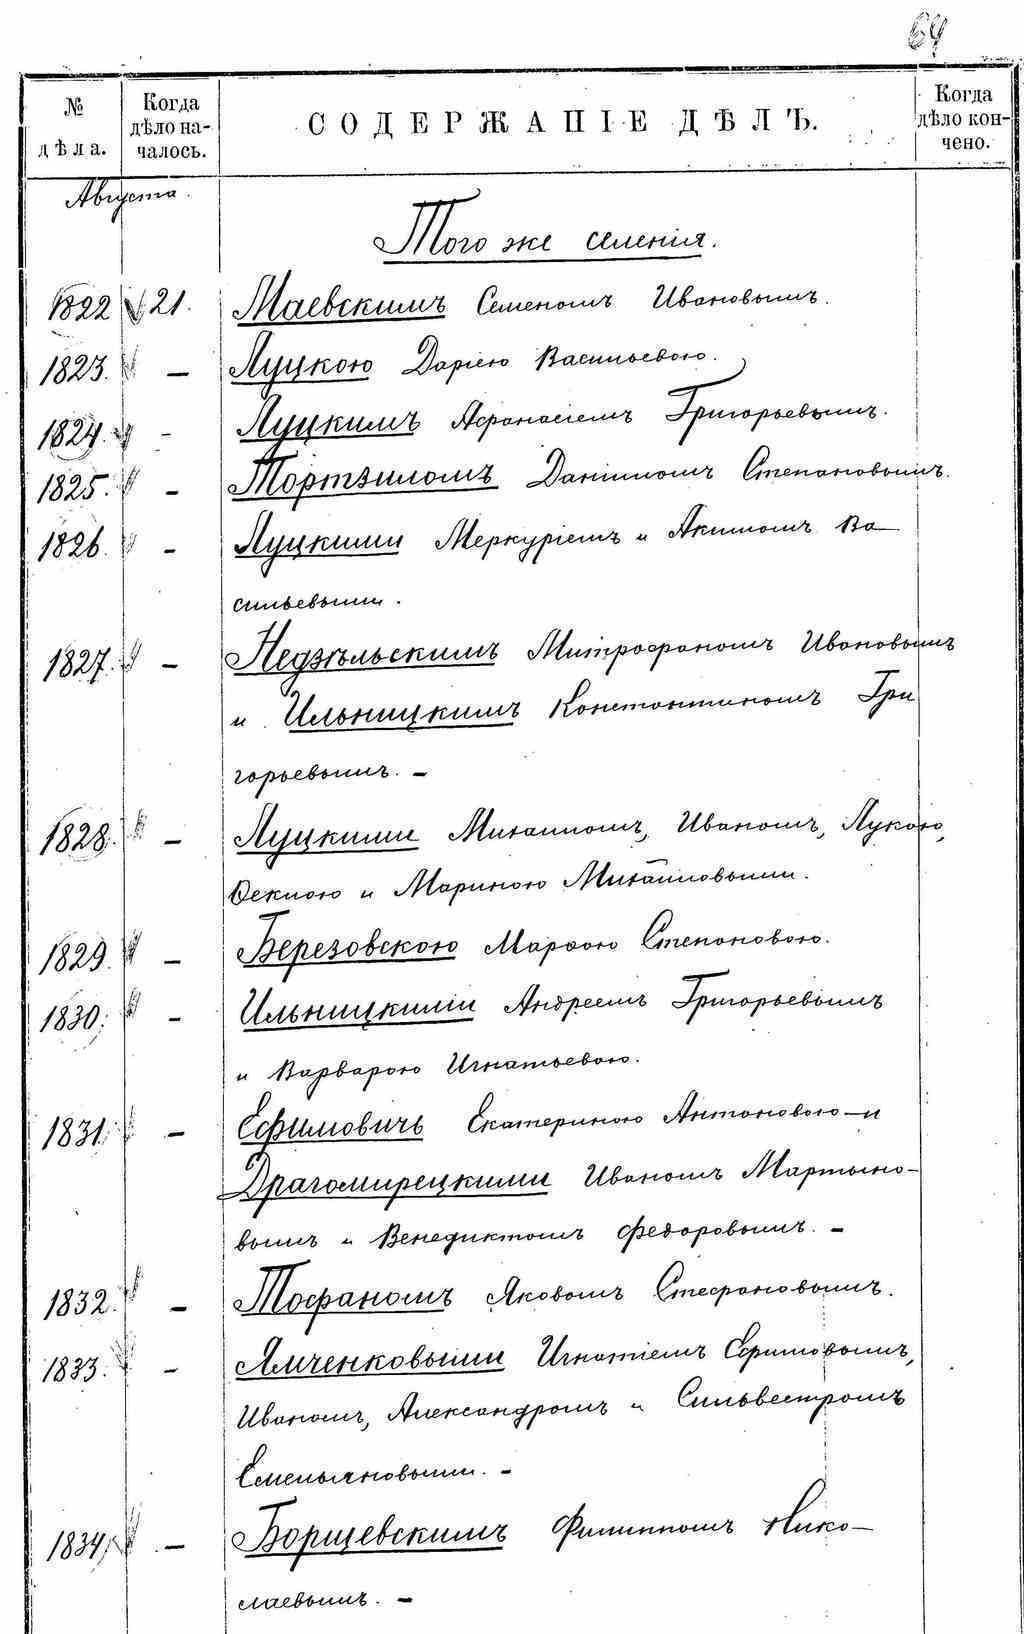 64
№ дѣла. Когда дѣло началось. СОДЕРЖАНІЕ ДѢЛЪ. Когда дѣло кончено.
Августа.
Того же селенія.
1822 21. Маевскимъ Семеномъ Ивановымъ.
1823. — Луцкою Даріею Васильевою.
1824. - Луцкимъ Афанасіемъ Григорьевымъ.
1825. - Мортэиломъ Даніиломъ Степановымъ.
1826. - Луцкими Меркуріемъ и Акимомъ Ва—
сильевыми.
1827. — Недзѣльскимъ Митрофаномъ Ивановымъ
и Ильницкимъ Константиномъ Гри
горьевымъ. —
1828. — Луцкими Михаиломъ, Иваномъ, Лукою,
Феклою и Мариною Михайловыми.
1829. — Березовскою Марѳою Степановою.
1830. - Ильницкими Андреемъ Григорьевымъ
и Варварою Игнатьевою.
1831. — Ефимовичъ Екатериною Антоновою — и
Драгомирецкими Иваномъ Мартыно-
вымъ и Венедиктомъ Федоровымъ. —
1832. — Тофаномъ Яковомъ Стефановымъ.
1833. - Ямченковыми Игнатіемъ Ефимовымъ,
Иваномъ, Александромъ и Сильвестромъ
Емельяновыми. -
1834. — Борщевскимъ Филиппомъ Нико—
лаевымъ. —